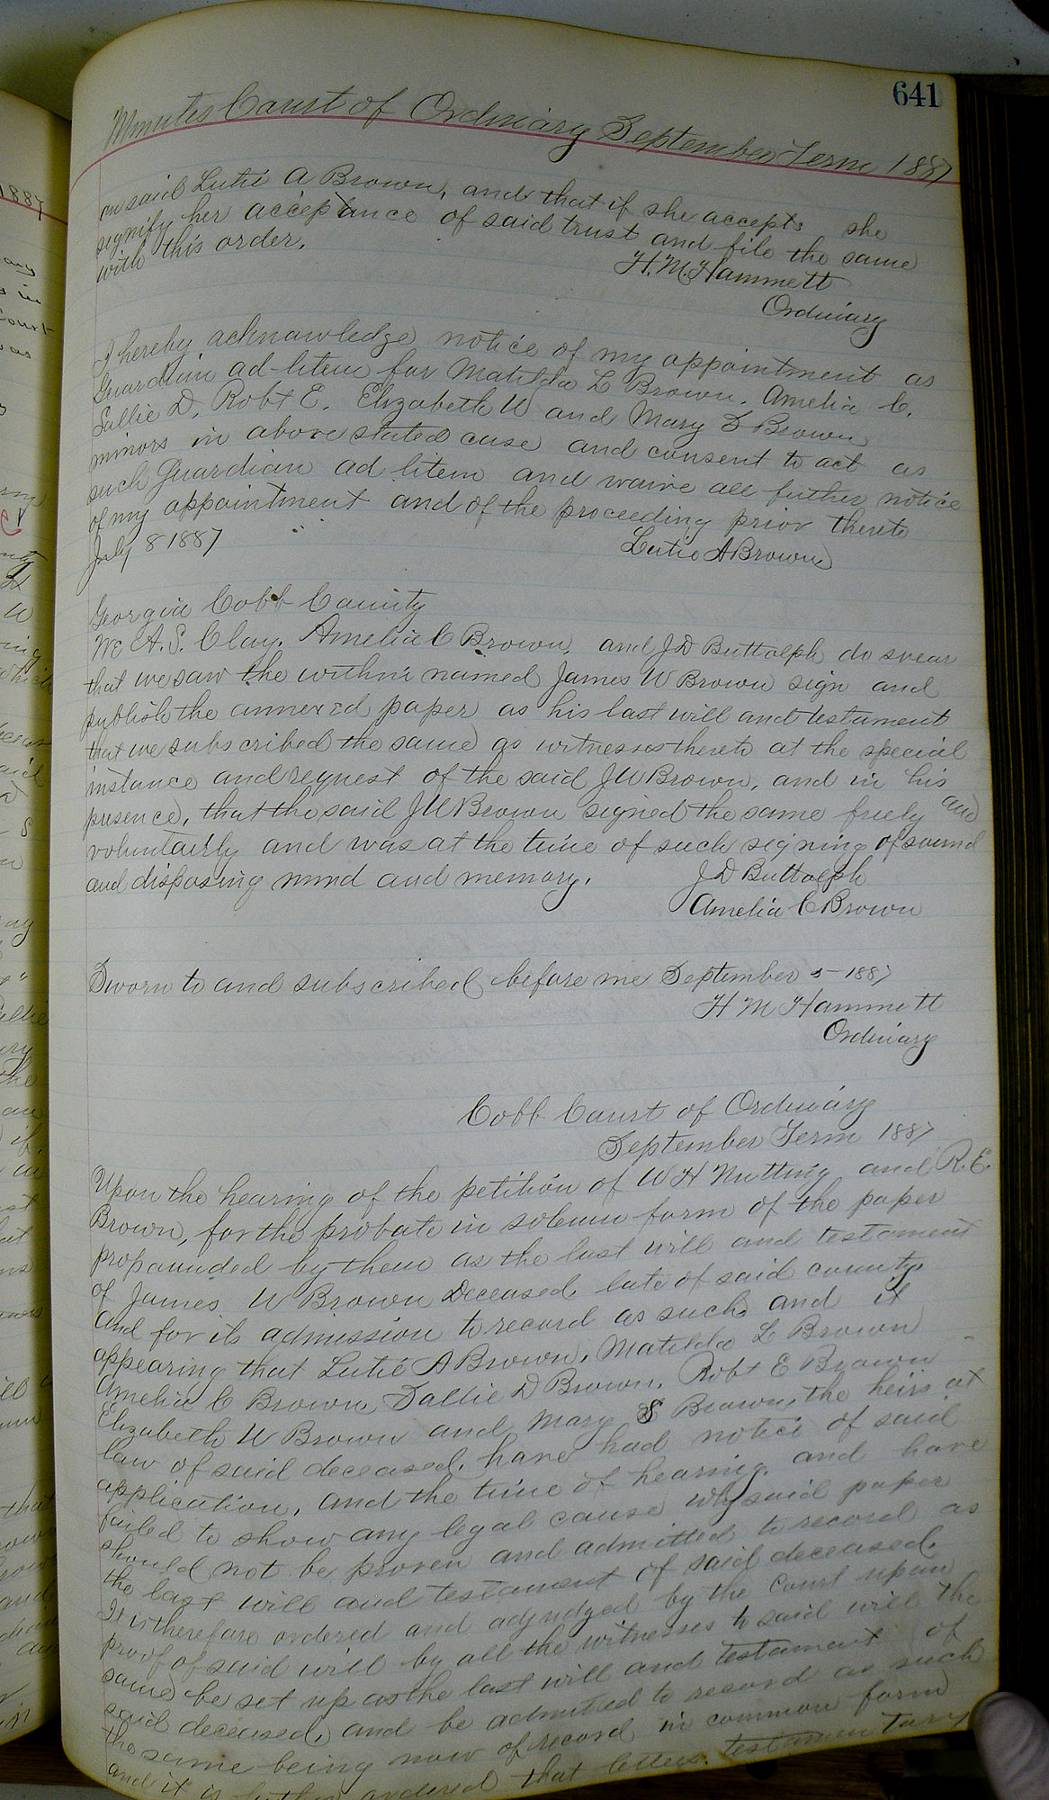 641
Minutes Court of Ordinary September Term 1887
on said Lutie A Brown, and that if she accepts she
signify her acceptance of said trust and file the same
with this order.
H. M. Hammett
Ordinary
I hereby acknowledge notice of my appointment as
Guardian ad-litem for Matilda L Brown. Amelia C.
Sallie D, Robt E. Elizabeth W and Mary S Brown
minors in above stated case and consent to act as
such Guardian ad litem and waive all further notice
of my appointment and of the proceeding prior thereto
July 8 1887
Lutie A Brown
Georgia Cobb County
We A. S. Clay. Amelia C Brown, and J D Buttolph do swear
that we saw the within named James W Brown sign and
publish the annexed paper as his last will and testament
that we subscribed the same as witnesses thereto at the special
instance and request of the said J W Brown, and in his
presence, that the said J W Brown signed the same freely and
voluntarily and was at the time of such signing of sound
and disposing mind and memory.
J D Buttolph
Amelia C Brown
Sworn to and subscribed before me September 5-1887
H M Hammett
Ordinary
Cobb Court of Ordinary
September Term 1887
Upon the hearing of the petition of W H Nutting and R. E.
Brown, for the probate in solemn form of the paper
propounded by them as the last will and testament
of James W Brown Deceased, late of said county
and for its admission to record as such and it
appearing that Lutie A Brown, Matilda L Brown
Amelia C Brown, Sallie D Brown, Robt E Brown
Elizabeth W Brown and Mary S Brown, the heirs at
law of said deceased, have had notice of said
application, and the time of hearing, and have
failed to show any legal cause why said paper
should not be proven and admitted to record as
the last will and testament of said deceased.
It is therefore ordered and adjudged by the Court upon
proof of said will by all the witnesses to said will the
same be set up as the last will and testament of
said deceased, and be admitted to record as such
the same being now of record in common form
and it is further ordered that letters testamentary